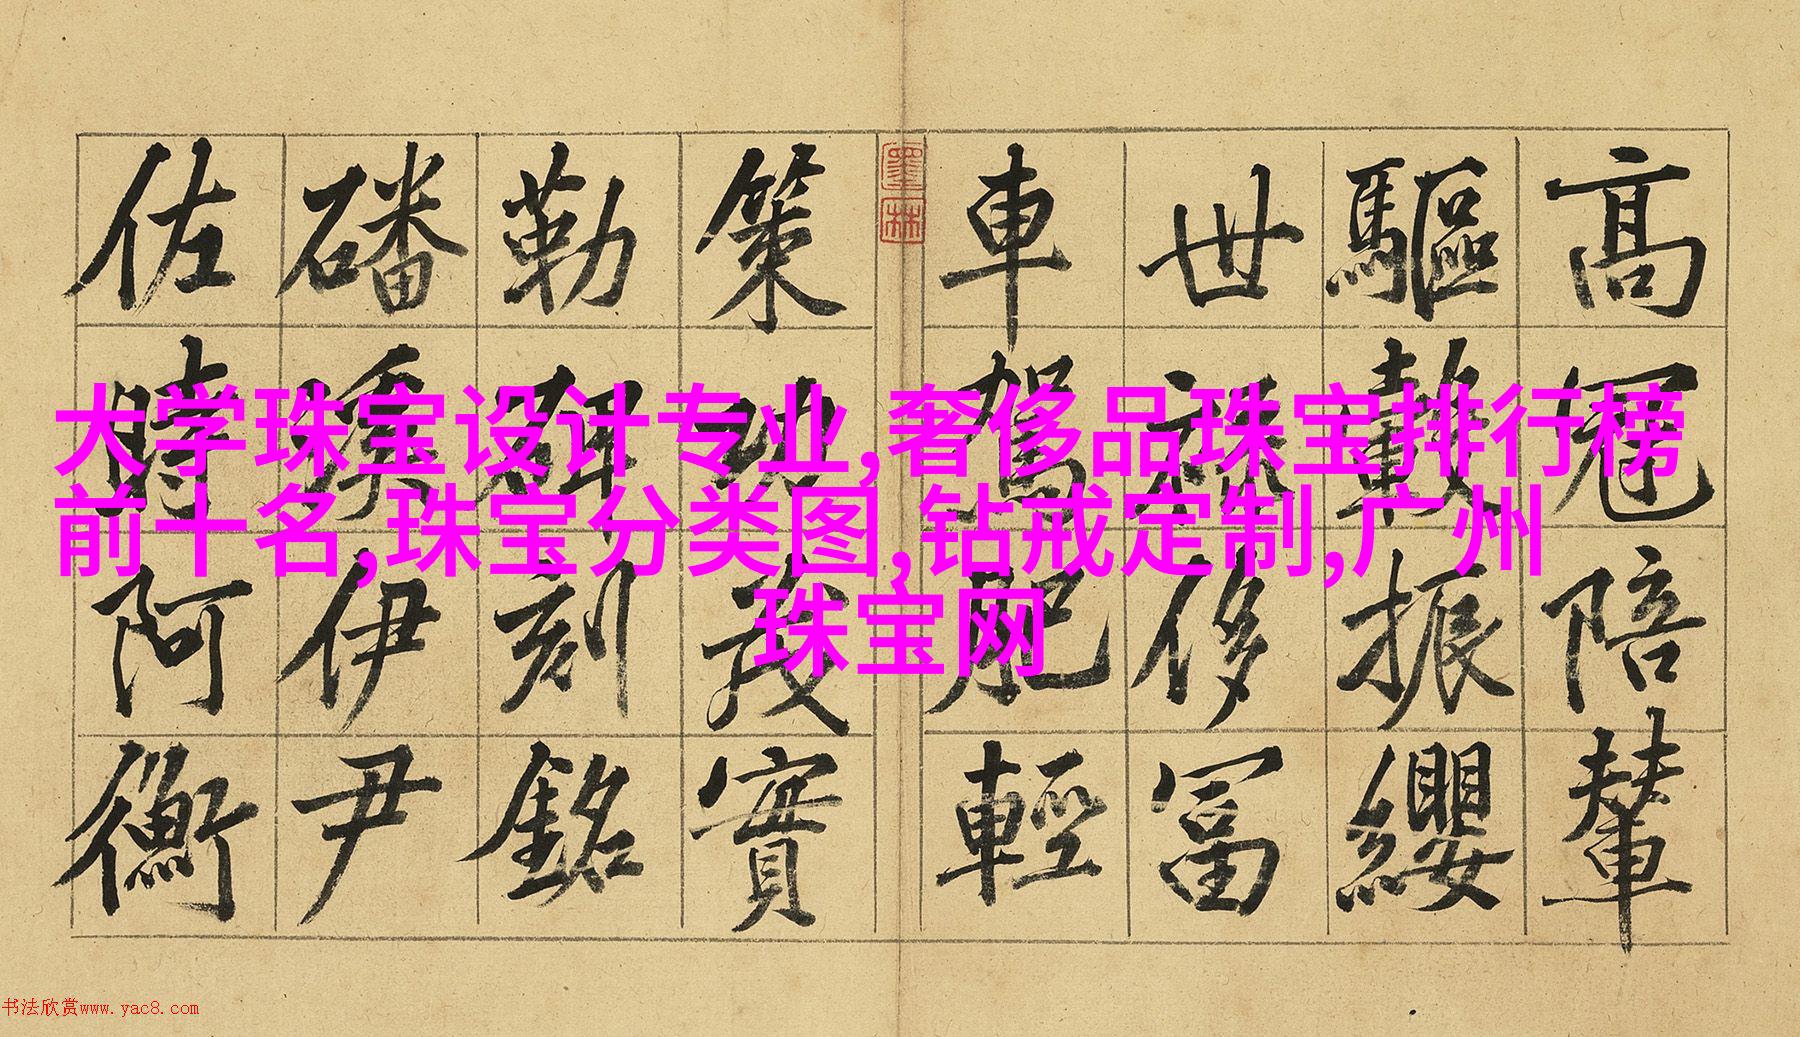 高冠陪輦
驅轂振纓
世祿侈富
車駕肥輕
墨林
策功茂實
勒碑刻銘
磻溪伊尹
佐時阿衡
大学珠宝设计专业,奢侈品珠宝排行榜
前十名,珠宝分类图,钻戒定制,广州
珠宝网
书法欣赏www.yac8.com